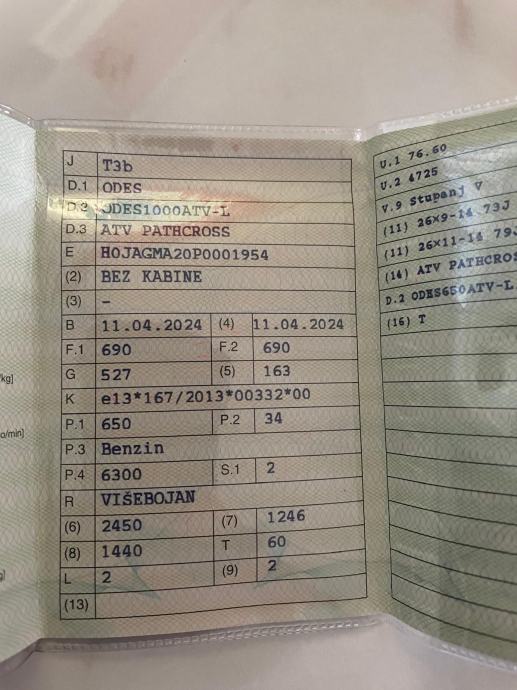 J T3b
D.1 ODES
D.2 ODES1000ATV-L
D.3 ATV PATHCROSS
E HOJAGMA20P0001954
(2) BEZ KABINE
(3) –
B 11.04.2024 (4) 11.04.2024
F.1 690 F.2 690
G 527 (5) 163
K e13*167/2013*00332*00
P.1 650 P.2 34
P.3 Benzin
P.4 6300 S.1 2
R VIŠEBOJAN
(6) 2450 (7) 1246
(8) 1440 T 60
L 2 (9) 2
(13)
U.1 76.60
U.2 4725
V.9 Stupanj V
(11) 26X9-14 73J
(11) 26X11-14 79J
(14) ATV PATHCROS
D.2 ODES650ATV-L
(16) T
/kg]
o/min]
g]